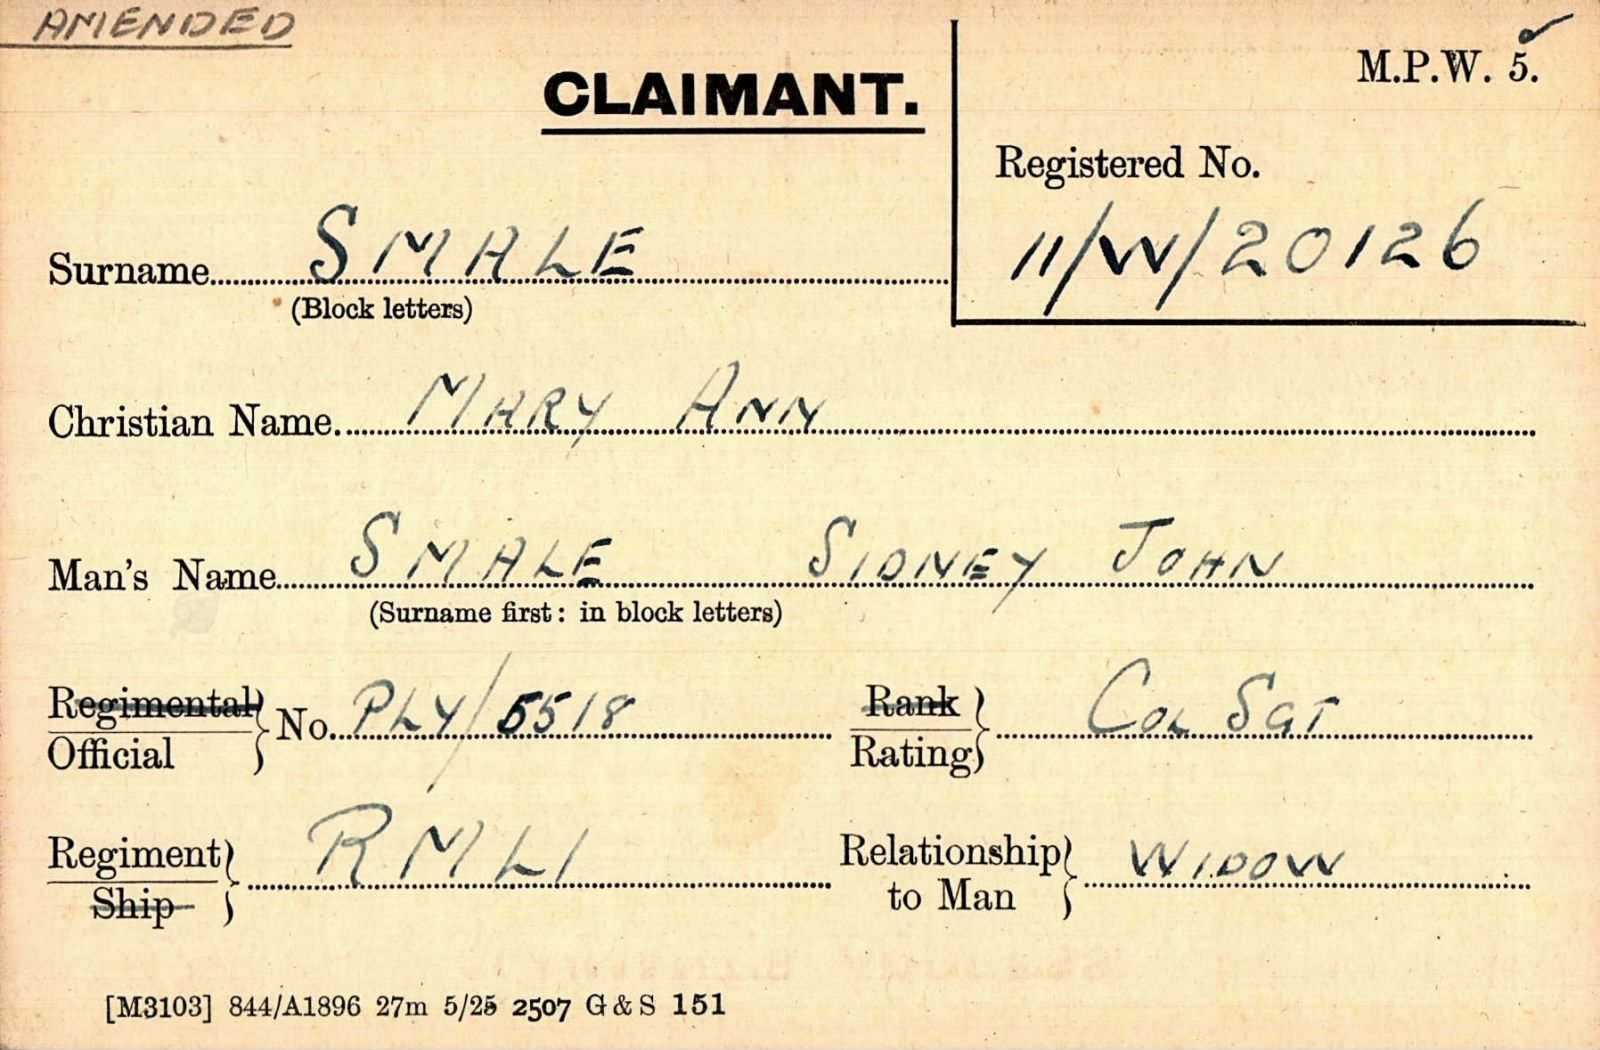 AMENDED
M.P.W. 5.
CLAIMANT.
Registered No.
11/W/20126
Surname SMALE
(Block letters)
Christian Name MARY ANN
Man's Name SMALE SIDNEY JOHN
(Surname first: in block letters)
Regimental
Official } No. PLY/5518
Rank
Rating } COL SGT
Regiment
Ship } RMLI
Relationship
to Man } WIDOW
[M3103] 844/A1896 27m 5/25 2507 G & S 151